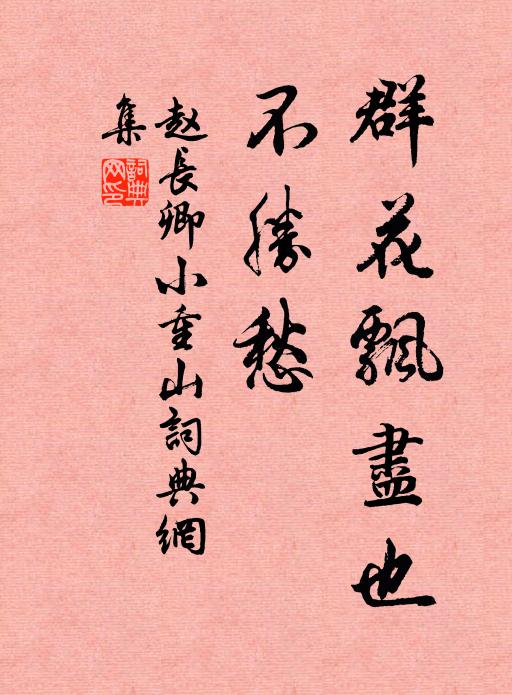 群花飄盡也
不勝愁
赵長卿小重山詞典網
集
詞典網印